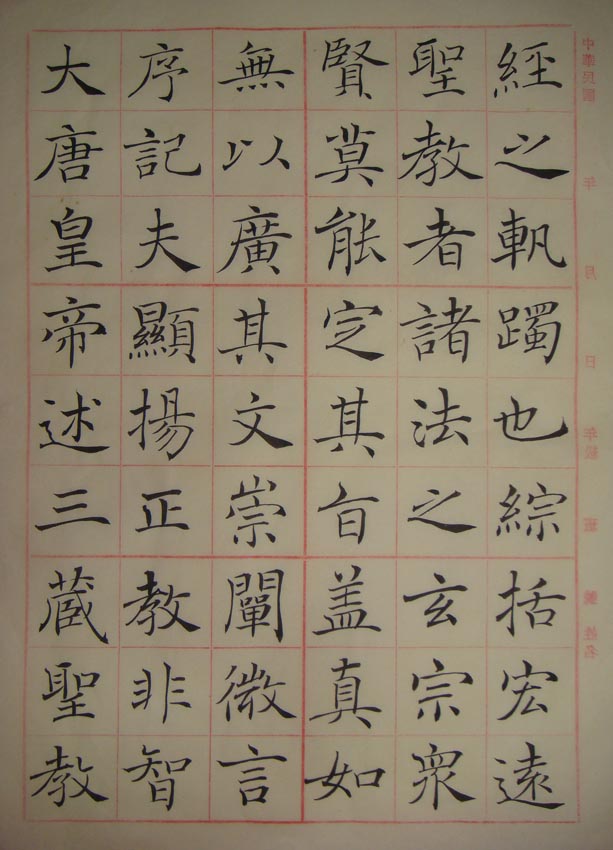 大唐皇帝述三蔵聖教
序記夫顯揚正教非智
無以廣其文崇闡微言
賢莫能㝎其旨盖真如
聖教者諸法之玄宗衆
經之軓躅也綜括宏遠
中華民國 年 月 日 年級 班 號 姓名